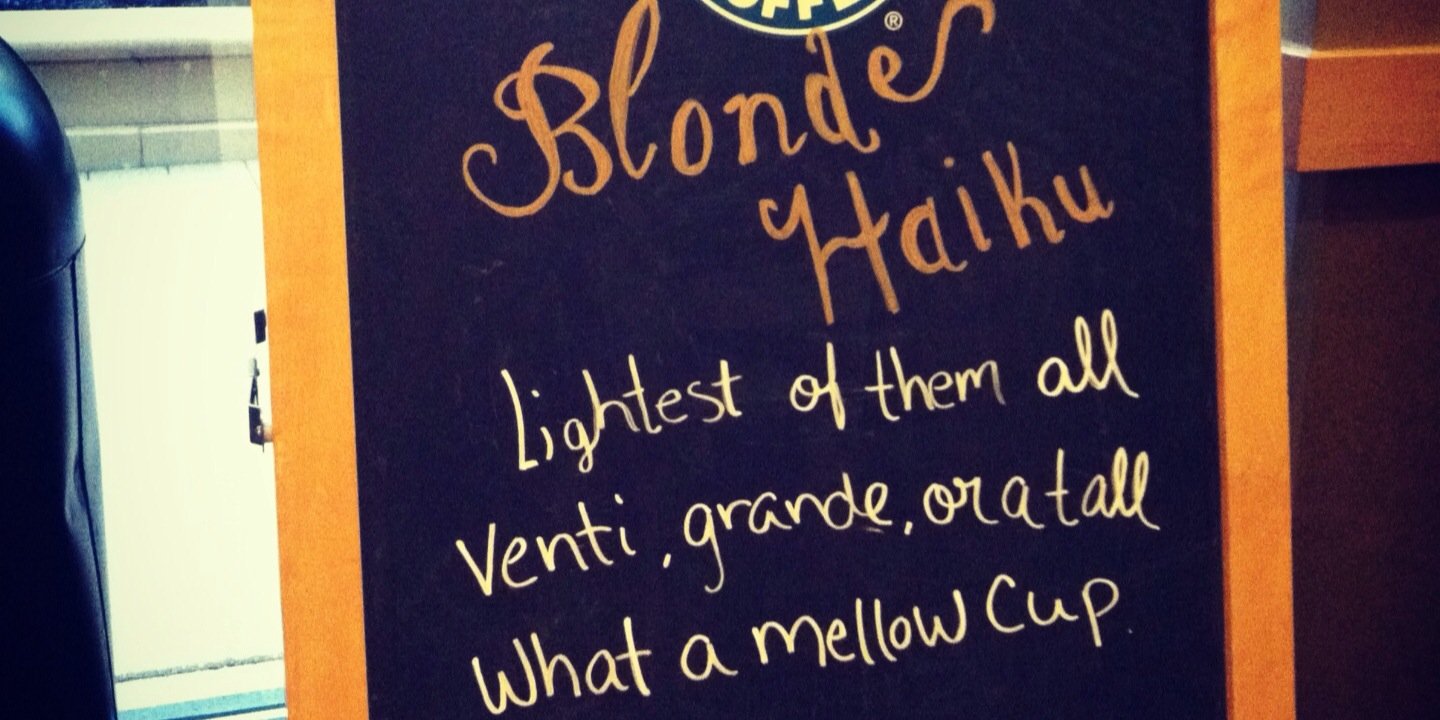 OFFE
®
Blonde
Haiku
Lightest of them all
Venti, grande, or a tall
What a mellow Cup.